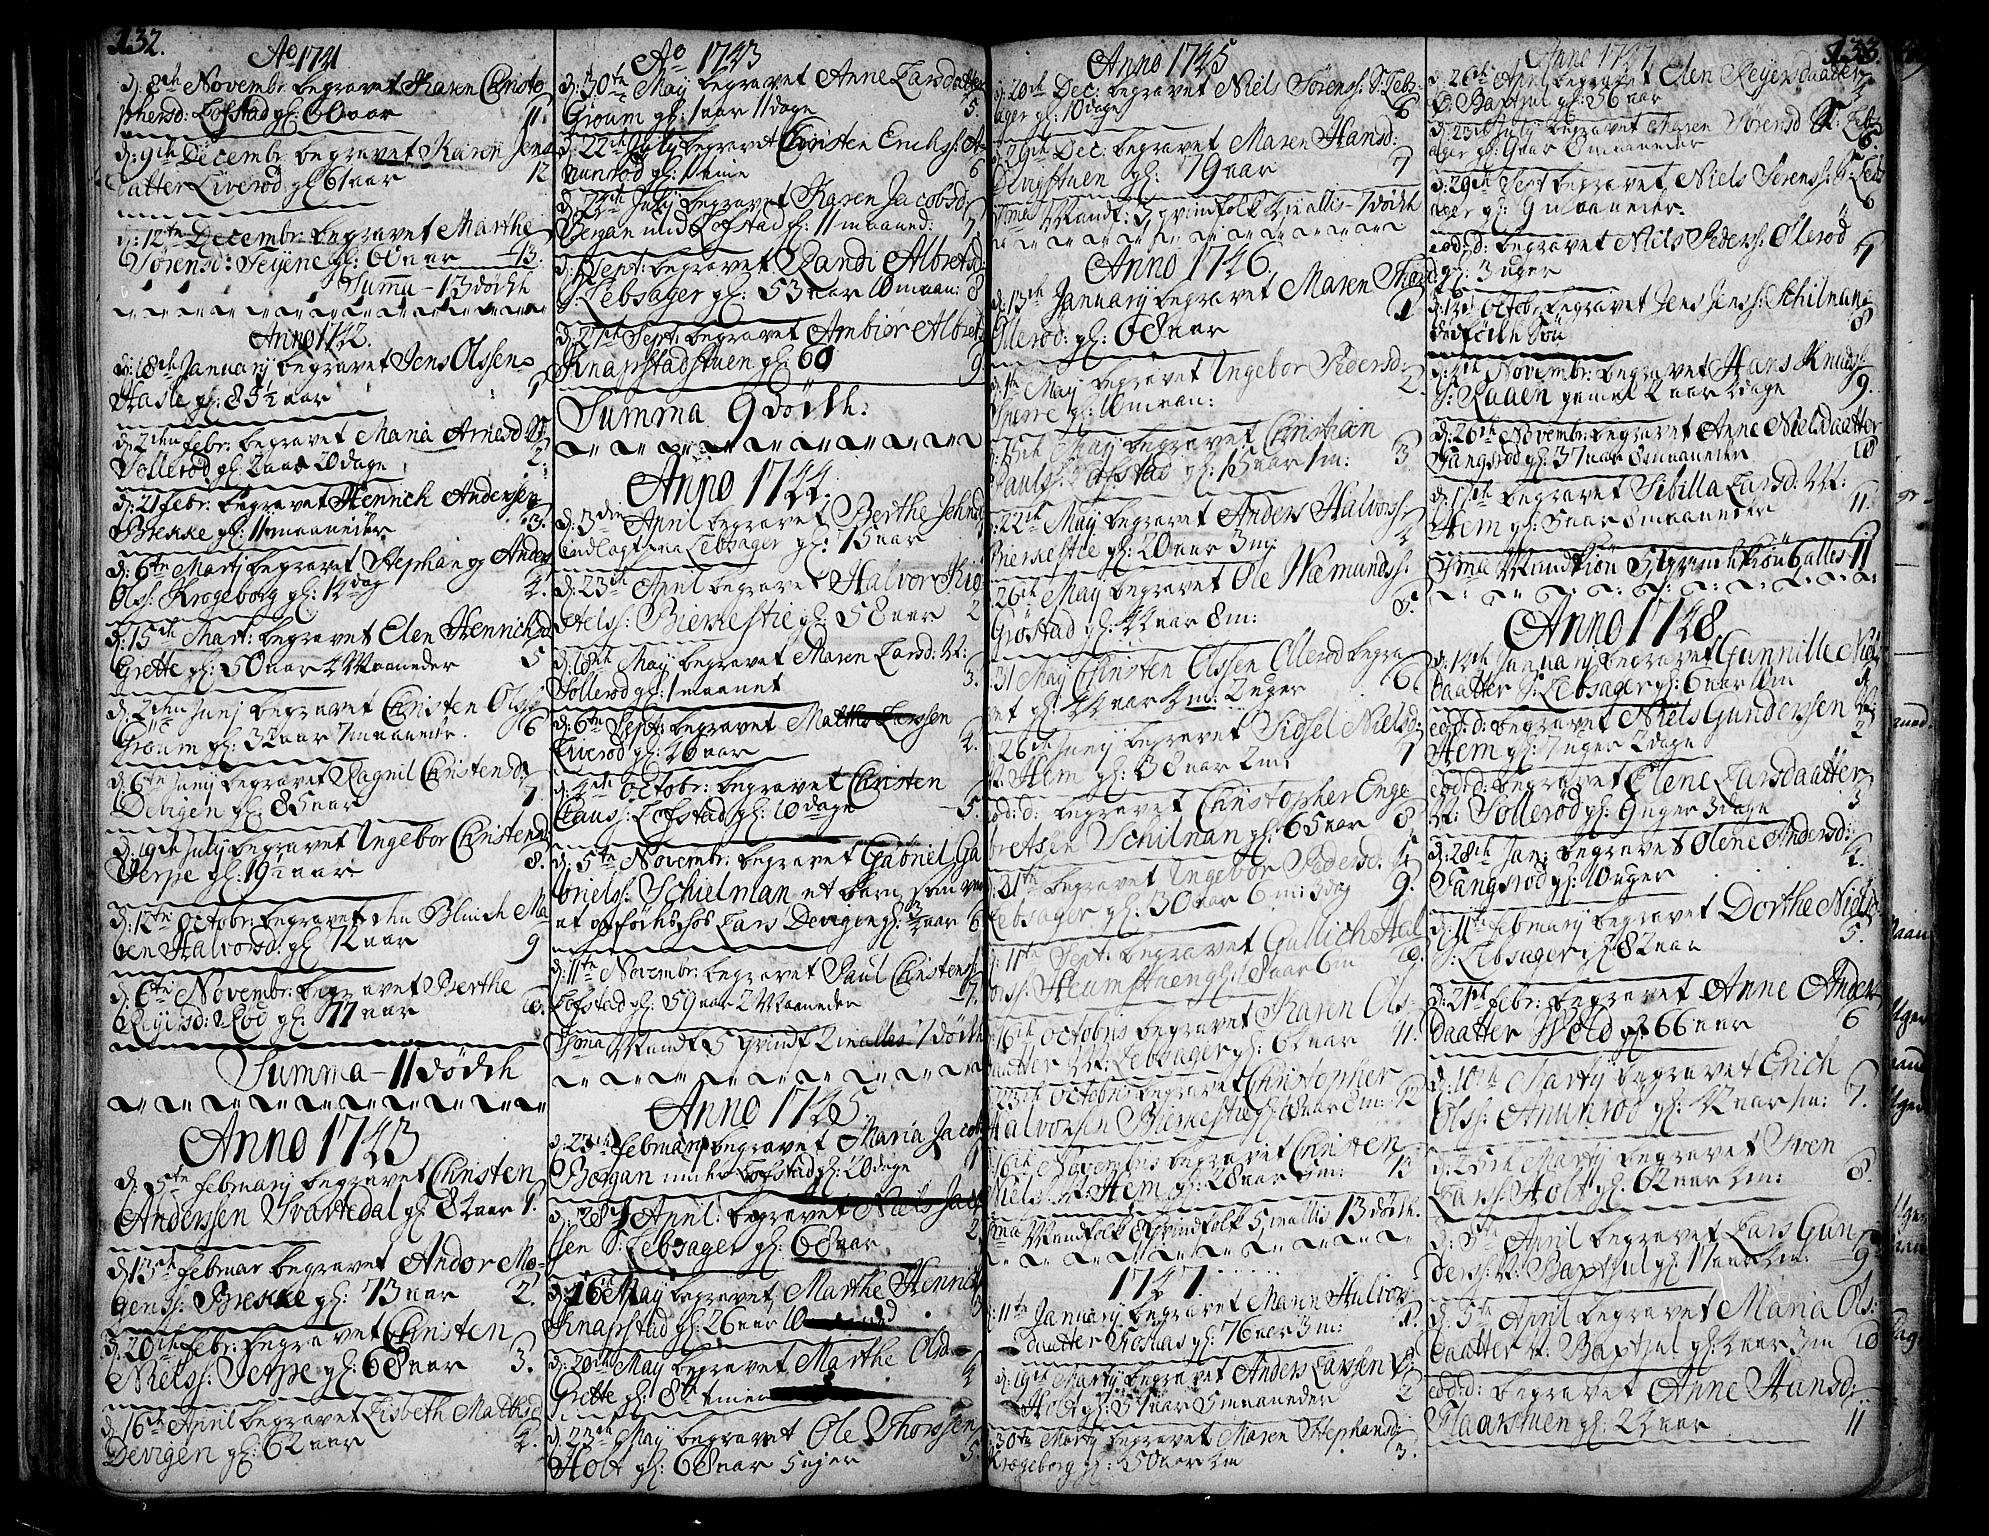 132.
Ao 1741
d: 8de Novembr: begravet Karen Christo
phersd: Lofstad gl: 60 aar 11.
d: 9de Decembr begravet Karen Jens
datter Liverød gl: 61 aar 12
d: 12te Decembr: begravet Marthe
Sørensd: gl: 60 aar 13.
Summa - 13 dødde
Anno 1742.
d: 18de January begravet Jens Olssen
Hasle gl: 85½ aar 1
d: 2den Febr: begravet Maria Arnesd
Sollerød gl: 2 aar 20 dage 2.
d: 21 Febr: begravet Henrich Andersen
Brekke gl: 11 maaneder 3.
d: 6te Martj begravet Stephan og Anders
Ols: Krogeborg gl: 1 dag 4.
d: 15de Mart: begravet Elen Henrichsd
Grette gl: 50 aar 4 Maaneder 5
d: 2den Junj begravet Christen Ols:
Groum gl: 32 aar 7 maaneder. 6
d: 6te Junj begravet Ragnil Christensd:
Devigen gl: 85 aar 7
d: 19de July begravet Ingebor Christensd
Serpe gl: 19½ aar 8.
d: 12te Octobr: begravet
Halvorsd: gl 72 aar 9
d: 6te Novembr: begravet Berthe
Reijersd: Rød gl: 77 aar 10.
Summa - 11 dødde
Anno 1743
d: 5te February begravet Christen
Anderssen Svartedal gl: 82 aar 1.
d: 13de Februar begravet Andor Mo-
gens: Brekke gl: 73 aar 2.
d: 20de Febr: begravet Christen
Niels: Serpe gl: 68 aar 3.
d: 16de April begravet Lisbeth Mathisd
Devigen gl: 62 aar 4.
Ao 1743
d: 30te May begravet Anne Larsdatter
Groum gl: 1 aar 11 dage 5.
d: 22de July begravet Christen Erichs: A-
nunrød gl: 1 time 6
d: 24de July begravet Karen Jacobsd
Bergan under Lofstad gl: 11 maaned: 7.
d: Sept: begravet Randi Albretsd:
S: Lebsager gl: 53 aar 10 maan: 8
d: 21de Sept: begravet Ambiør Albretsd
Knapstadstuen gl: 60 9
Summa 9 dødde:
Anno 1744.
d: 3den April begravet Berthe Johnsd
indlagt paa Lebsager gl: 75 aar 1
d: 23de April begravet Halvor Kiø
stels: Bierkestie gl: 58 aar 2
d: 18de May begravet Maren Larsd: V:
Sollerød gl: 1 maanet 3.
d: 6te Sept: begravet Mathis Larssen
Liverød gl: 46 aar 4.
d: 4de Octobr: begravet Christen
Claus: Lofstad gl: 10 dage 5.
d: 5te Novembr: begravet Gabriel Ga
briels: Schielman et barn som var
at opføde hos Lars Devigen gl: aar 6
d: 11te Novembr: begravet Paul Christens:
Lofstad gl: 59 aar 2 Maaneder 7.
Sma Mandk 5 qvindk 2 in alles 7 dødde
Anno 1745
d: 23de February begravet Maria Jacobs
Bergan under Lofstad gl: 20 dage 1
d: 28de April: begravet Niels Jacob
sen S: Lebsager gl: 68 aar 2
d: 16de May begravet Marthe Henrichs
Knapstad gl: 26 aar 10 3
d: 20de May begravet Marthe Olsd
Grette gl: 8 timer 4
d: 23de May begravet Ole Thorssen
Holt gl: 68 aar 5 uger 5.
Anno 1745
d: 20de Dec: begravet Niels Sørens: S: Lebs-
ager gl: 10 dage 6
d: 29de Dec: begravet Maren Hansd:
Devigstuen gl: 79 aar 7
Sma Mandk: 3 qvindfolk 4 in allis - 7 dødde
Anno 1746.
d: 13de January begravet Maren
Ollerød: gl: 68 aar 1
d: 1te May begravet Ingebor Pedersd:
gl: 10 maan: 2.
d: 15de May begravet Christian
Pauls: Lofstad gl: 15 aar 1 m: 3.
d: 22de May begravet Anders Halvors:
Bierkestie gl: 20 aar 3 m: 4.
d: 26de May begravet Ole Wæmunds:
Grøstad gl: 42 aar 8 m: 5.
d: 31 May Christen Olssen Ollerød begra-
vet gl: 44 aar 4 m: 2 uger 6.
d: 26de Junij begravet Sidsel Nielsd:
V: Hem gl: 38 aar 2 m: 7
eod: d: begravet Christopher Enge
bretsen Schilman gl: 65 aar 8.
d: 21te begravet Ingebor Pedersd: S:
Lebsager gl: 30 aar 6 m: 3 dag 9.
d: 11te Sept: begravet Gullich Hal
vors: gl: 18 aar 6 m 10.
d: 16de Octobris begravet Karen Ols-
datter V: Lebsager gl: 62 aar 11.
d: 23de Octobris begravet Christopher
Halvorsen Bierkestie gl: 18 aar 8 m: 12
d: 16de Novembris begravet Christen
Niels: V: Hem gl: 28 aar m: 13
Sma Mandfolk 8 qvindfolk 5 in allis 13 dødde.
1747.
d: 11te January begravet Maren Halvor-
daatter gl: 76 aar 3 m: 1.
d: 19de Martj begravet Anders Larsen V:
Holt gl: 57 aar 5 maaneder 2
d: 30te Martj begravet Maren Stephansd:
Krogeborg gl: 50 aar 4 m 3.
133.
Anno 1747
d: 26de April begravet Elen Reijersdaatter
Ø: Baptjul gl: 56 aar 4
d: 23de July begravet Maren Sørensd S: Lebs
ager gl: 9 aar 8 maaneder 5.
d: 29de Sept begravet Niels Sørens: S: Lebs
ager gl: 9 maaneder. 6
eod: d: begravet Niels Peders: Ølerød
gl: 3 uger 7
d: 14de Octobr begravet Jens Jens: Schilman
8
d: 4de Novembr: begravet Hans Knuds:
S: Raaen gamel 2 aar 4 dage 9.
d: 26de Novembr: begravet Anne Nielsdaatter
Fangsrød gl: 37 aar 8 maaneder 10
d: 17de begravet Sibilla Larsd: V:
Hem gl: 8 aar 8 maaneder 11.
Sma Mandkiøn 5 qvindekiøn 6 alles 11
Anno 1748
d: 14de January begravet Gunnille Niels
daatter S: Lebsager gl: 6 aar 10 m 1.
eod: d: begravet Niels Gunderssen V:
Hem gl: 7 uger 2 dage 2
eod: d: begravet Elene Larsdaatter
V: Sollerød gl: 9 uger 3 dage 3
d: 28de Jan: begravet Olene Andersd:
Fangsrød gl: 10 uger 4.
d: 11te February begravet Dorthe Nielsd:
S: Lebsager gl 82 aar 5.
d: 21de Febr: begravet Anne Anders
daatter Wold gl: 66 aar 6
d: 10de Martj begravet Erich
Ols: Anunrød gl: 42 aar m: 7.
d: 25de Martj begravet Sven
Lars: Holt gl: 62 aar 4 m: 8.
d: 3de April begravet Lars Gun
ders: V: Baptjul gl: 17 aar 4 m: 9
d: 5te April begravet Maria Ols:
daatter V: Baptjul gl: 4 aar 3 m 10
eod: d: begravet Anne Hansd:
Haarstuen gl: 24 aar 11